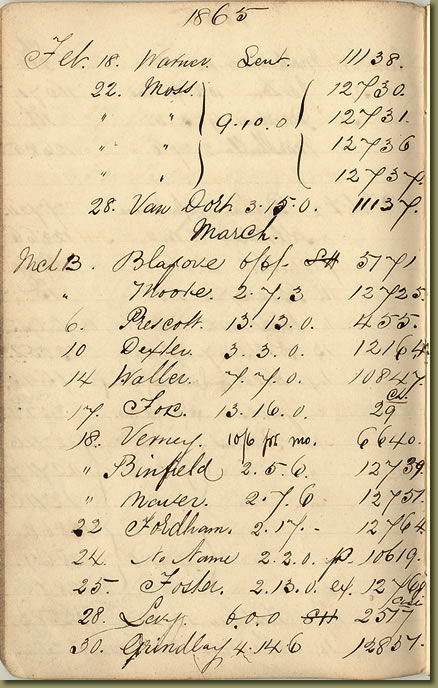 1865
Feb. 18. Warner Lent. 11138.
22. Moss. 9.10.0 12730.
" " 12731.
" " 12736
" " 12737.
28. Van Dort. 3.15.0. 11137.
March.
Mch 3. Blagrove 6/6/- SH 5771
" Moore. 2.7.3 12725.
6. Prescott. 13.13.0. 455.
10 Dexter. 3.3.0. 12164.
14 Waller. 7.7.0. 10847.
17. Fox. 13.16.0. 29
18. Verney. 10/6 pr mo. 6640.
" Binfield 2.5.6. 12739
" 2.7.6 12757.
22 Fordham. 2.17.- 12764.
24. No Name 2.2.0. p. 10619.
25. Foster. 2.13.0. ex. 12768
28. Levy. 6.0.0 SH 2517
30. Grindlay 4.14.6 12857.